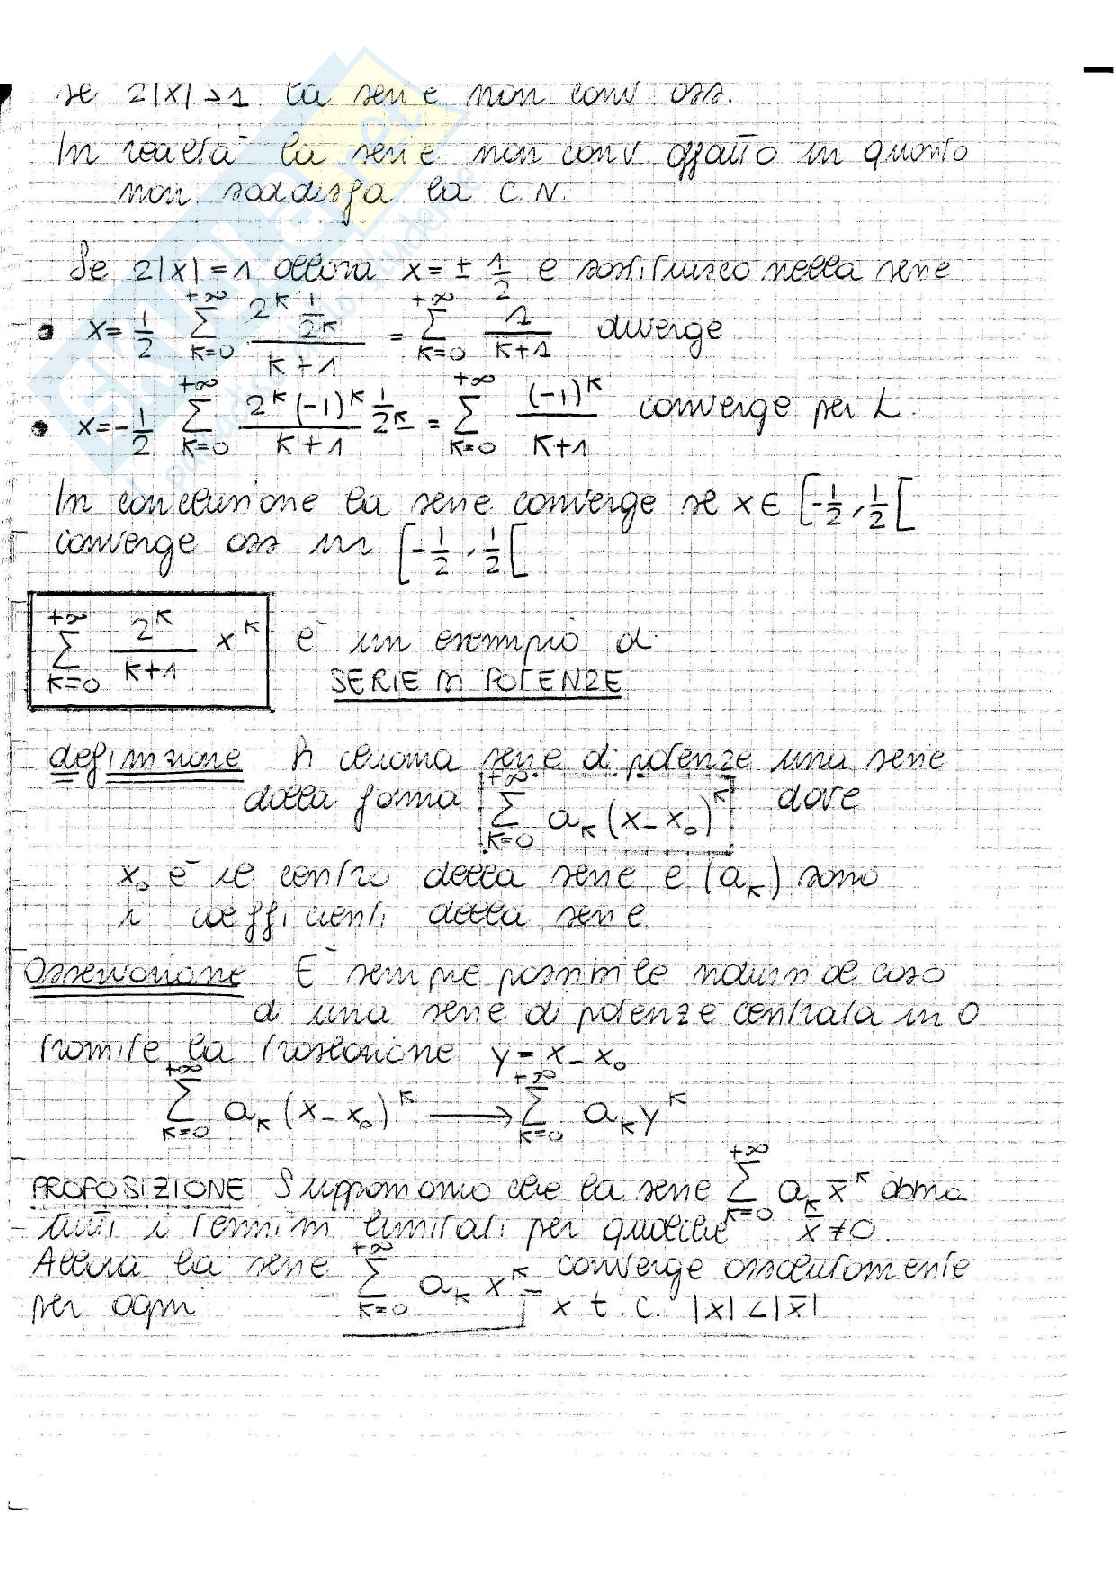 se 2|x|>1 la serie non conv ass.
In realtà la serie non conv affatto in quanto
non soddisfa la C.N.
Se 2|x|=1 allora x=± 1/2 e sostituisco nella serie
• x= 1/2 ∑_{k=0}^{+∞} (2^k 1/2^k)/(k+1) = ∑_{k=0}^{+∞} 1/(k+1) diverge
• x=-1/2 ∑_{k=0}^{+∞} (2^k (-1)^k)/(k+1) 1/2^k = ∑_{k=0}^{+∞} (-1)^k/(k+1) converge per L.
In conclusione la serie converge se x∈ [-1/2, 1/2[
converge ass in [-1/2, 1/2[
∑_{k=0}^{+∞} 2^k/(k+1) x^k è un esempio di
SERIE DI POTENZE
definizione Si chiama serie di potenze una serie
della forma ∑_{k=0}^{+∞} a_k (x-x_0)^k dove
x_0 è il centro della serie e (a_k) sono
i coefficienti della serie.
Osservazione È sempre possibile ridursi al caso
di una serie di potenze centrata in 0
tramite la traslazione y = x-x_0
∑_{k=0}^{+∞} a_k (x-x_0)^k ⟶ ∑_{k=0}^{+∞} a_k y^k
PROPOSIZIONE Supponiamo che la serie ∑_{k=0}^{+∞} a_k x̄^k abbia
tutti i termini limitati per qualche x̄≠0.
Allora la serie ∑_{k=0}^{+∞} a_k x^k converge assolutamente
per ogni x t.c. |x|<|x̄|